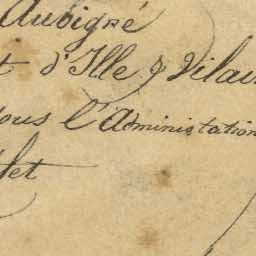 Aubigné
t d'Ille & Vilai
ous l'administation
let